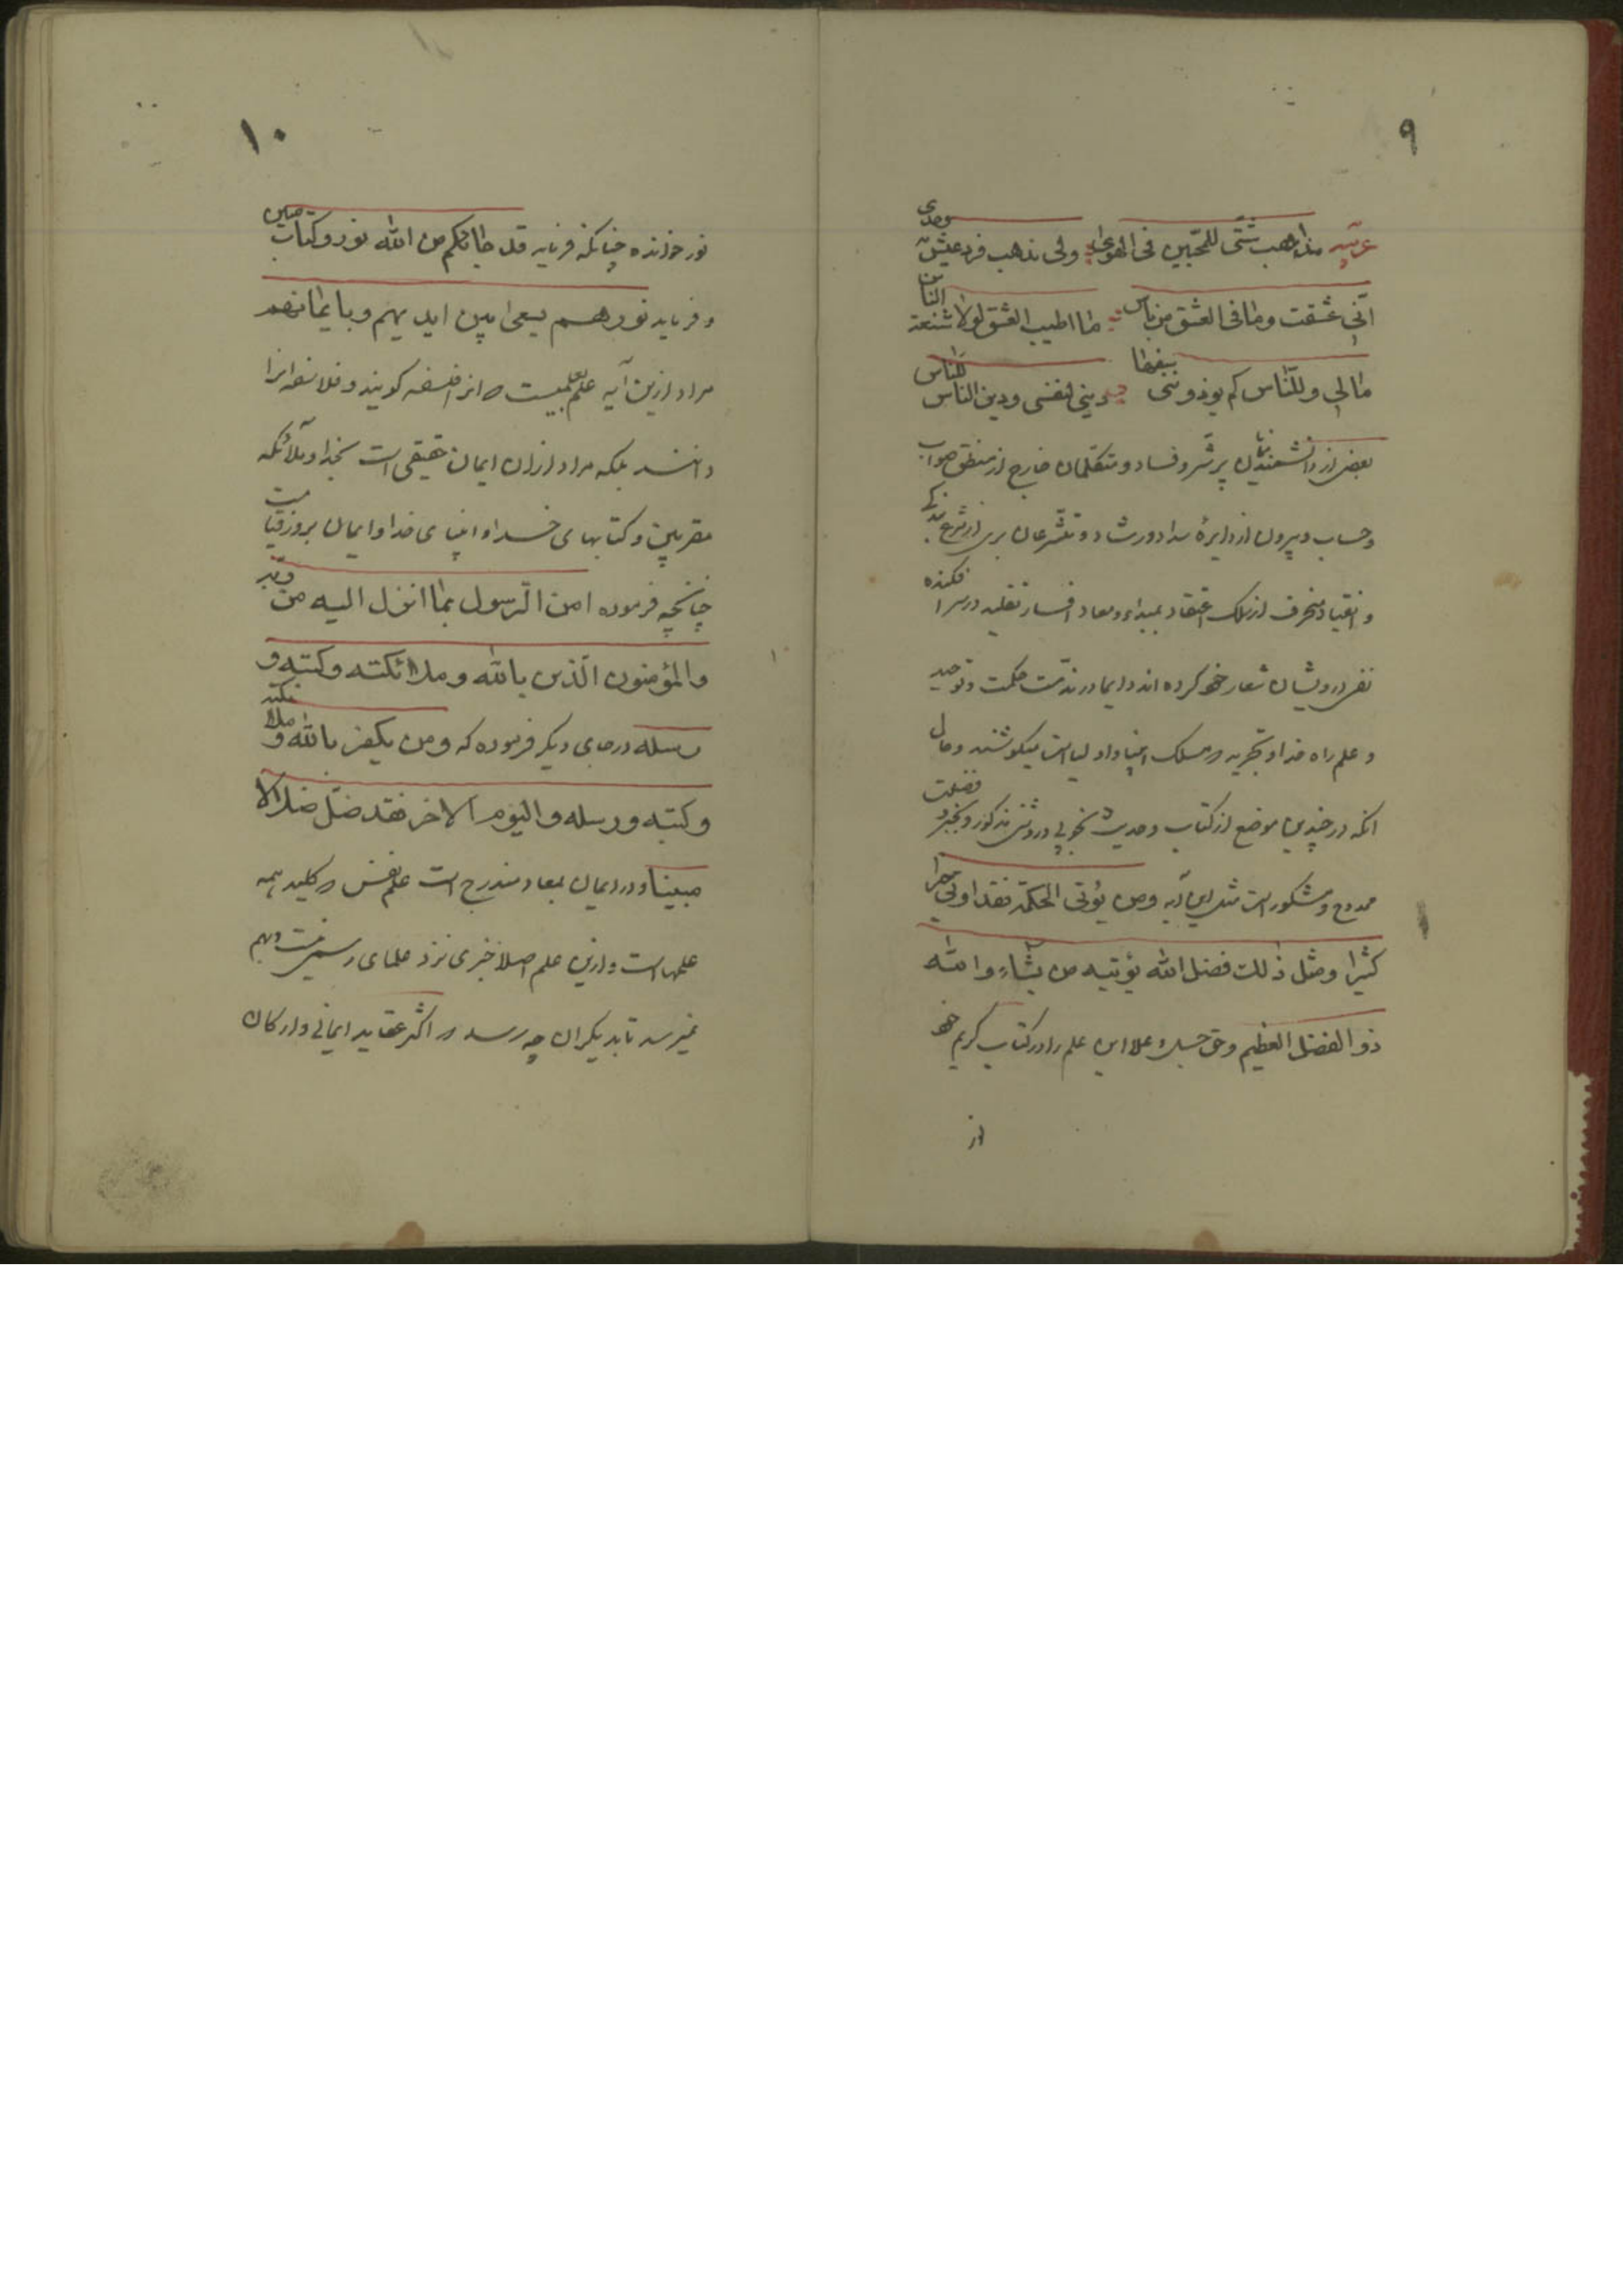 ۹
عربیه مذاهب شتّی للمحبّین فی الهوی ولی مذهب فرد اعیش به وحدی
انّی عشقت وما فی العشق من باس ما اطیب العشق لولا شنعة الناس
مالی وللنّاس کم یوذوننی سفها دینی لنفسی ودین الناس للناس
بعضی از دانشمندنمایان پر شر و فساد و متکلمان خارج از منطق صواب
و حساب و بیرون از دایرهٔ سداد و رشاد و متشرعان بری از شرع بندگی
و انقیاد منحرف از مسلک اعتقاد بمبداء و معاد افسار تقلید در سر افکنده
نفی درویشان شعار خود کرده اند و دایما در مذمّت حکمت و توحید
و علم راه خدا و تجرید که مسلک انبیا و اولیاست میکوشند و حال
انکه در چندین موضع از کتاب و حدیث بخوبی و درویشی مذکور و بخیر و فضیلت
ممدوح و مشکور است مثل این آیه ومن یؤتی الحکمة فقد اوتی خیرا
کثیرا ومثل ذلك فضل الله یؤتیه من یشاء والله
ذو الفضل العظیم وحق جل وعلا این علم را در کتاب کریم خود
از
۱۰
نور خوانده چنانکه فرماید قد جائکم من الله نور وکتاب مبین
و فرماید نورهم یسعی بین ایدیهم وبایمانهم
مراد ازین آیه علم نه علمیست که انرا فلسفه کویند و فلاسفه انرا
دانند بلکه مراد از ان ایمان حقیقی است بخدا و ملائکه
مقربین و کتابهای خدا و انبیای خدا و ایمان بروز قیامت
چنانچه فرموده امن الرّسول بما انزل الیه من ربّه
والمؤمنون الّذین بالله وملائکته وکتبه و
رسله در جای دیکر فرموده که ومن یکفر بالله و ملائکته
وکتبه ورسله والیوم الاخر فقد ضلّ ضلالا
مبینا و در ایمان بمعاد مندرج است علم نفس که کلید همه
علمهاست و ازین علم اصلا خبری نزد علمای رسمی نیست و بهم
نمیرسد تا بدیکران چه رسد که اکثر عقاید ایمانی و ارکان